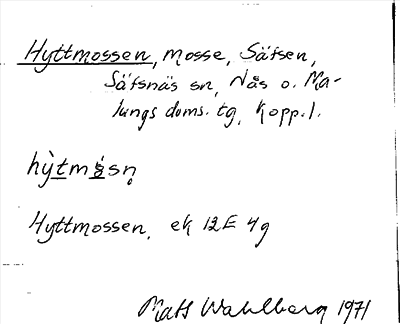 Hyttmossen, mosse, Säfsen,
Säfsnäs sn, Nås o. Ma-
lungs doms. tg, Kopp. l.
Hyttmossen, ek 12E 4g
Mats Wahlberg 1971